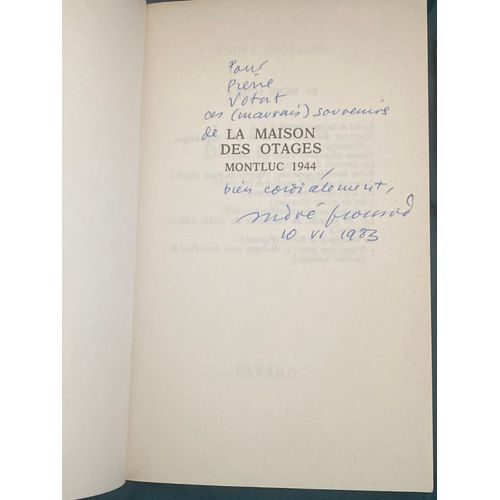 Pour
Pierre
Votat
ces (mauvais) souvenirs
de LA MAISON
DES OTAGES
MONTLUC 1944
bien cordialement,
André Frossard
10 VI 1983
FAYARD